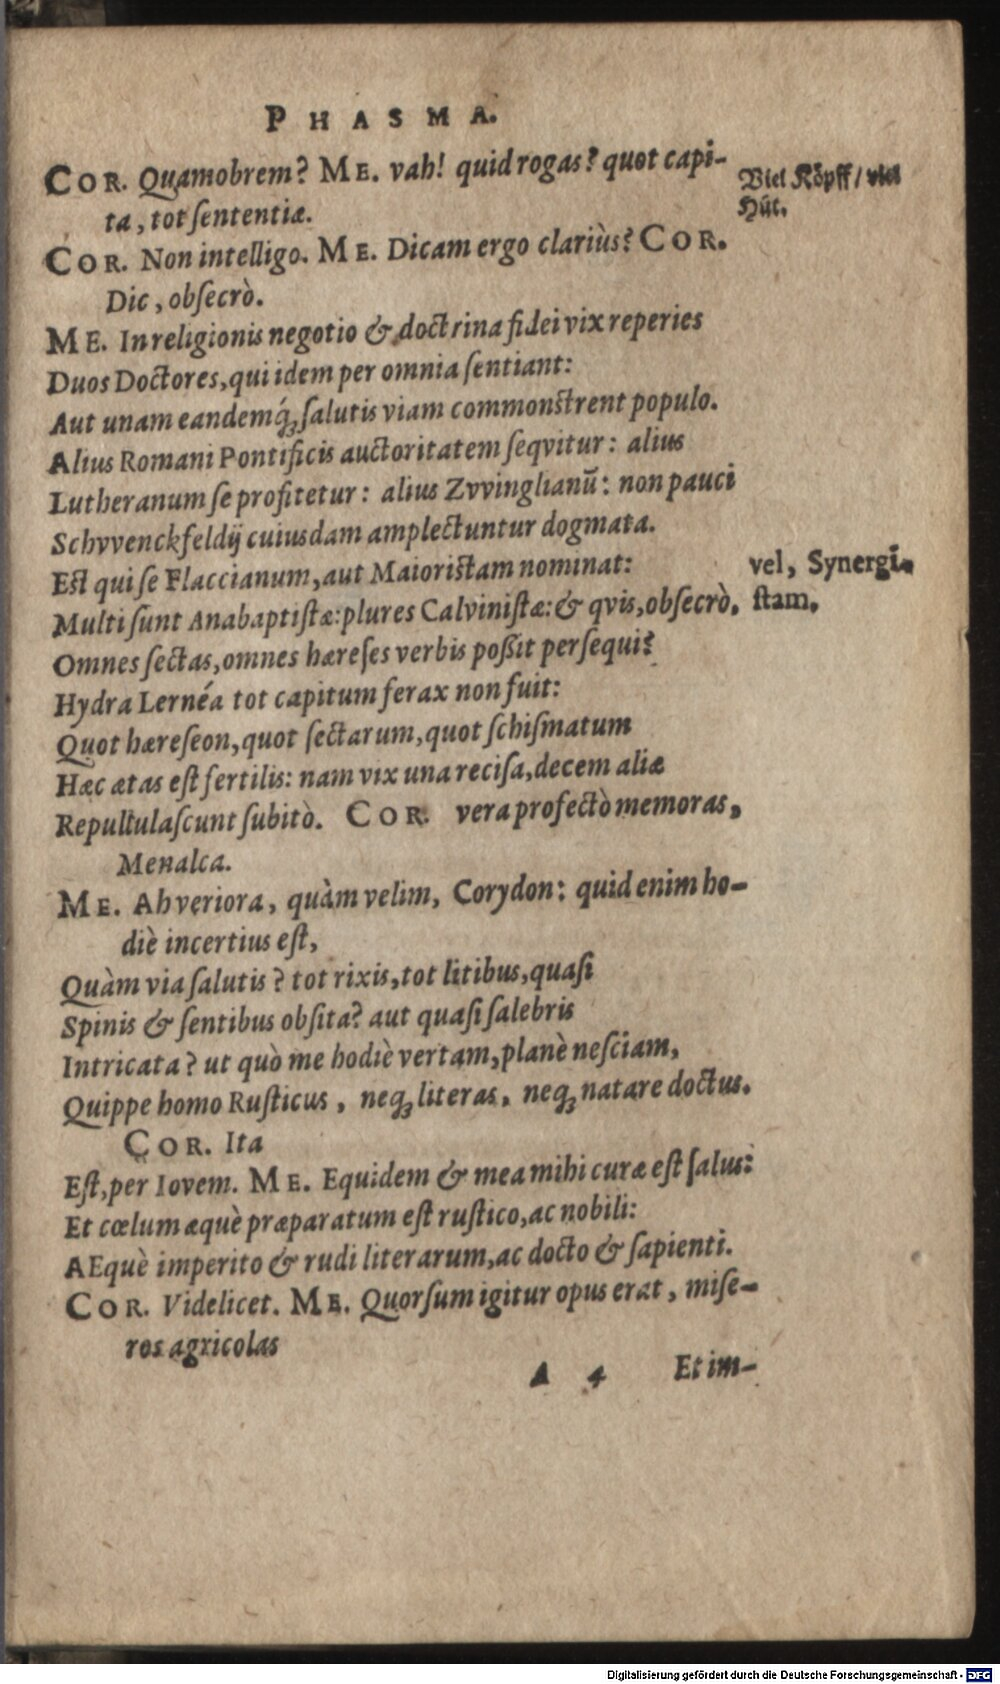 PHASMA.
COR. Quamobrem? ME. vah! quid rogas? quot capi-
ta, tot ſententiæ.
Viel Köpff / viel
Hüt.
COR. Non intelligo. ME. Dicam ergo clariùs? COR.
Dic, obſecrò.
ME. In religionis negotio & doctrina fidei vix reperies
Duos Doctores, qui idem per omnia ſentiant:
Aut unam eandemq́ꝫ ſalutis viam commonſtrent populo.
Alius Romani Pontificis auctoritatem ſeqvitur: alius
Lutheranum ſe profitetur: alius Zvvinglianū: non pauci
Schvvenckfeldij cuiusdam amplectuntur dogmata.
Eſt qui ſe Flaccianum, aut Maioriſtam nominat:
vel, Synergi-
ſtam.
Multi ſunt Anabaptiſtæ: plures Calviniſtæ: & qvis, obſecrò,
Omnes ſectas, omnes hæreſes verbis poſſit perſequi?
Hydra Lernéa tot capitum ferax non fuit:
Quot hæreſeon, quot ſectarum, quot ſchiſmatum
Hæc ætas eſt fertilis: nam vix una reciſa, decem aliæ
Repullulaſcunt ſubitò. COR. vera profectò memoras,
Menalca.
ME. Ah veriora, quàm velim, Corydon: quid enim ho-
diè incertius eſt,
Quàm via ſalutis? tot rixis, tot litibus, quaſi
Spinis & ſentibus obſita? aut quaſi ſalebris
Intricata? ut quò me hodiè vertam, planè neſciam,
Quippe homo Ruſticus, neqꝫ literas, neqꝫ natare doctus.
COR. Ita
Eſt, per Iovem. ME. Equidem & mea mihi curæ eſt ſalus:
Et cœlum æquè præparatum eſt ruſtico, ac nobili:
AEquè imperito & rudi literarum, ac docto & ſapienti.
COR. Videlicet. ME. Quorſum igitur opus erat, miſe-
ros agricolas
A 4 Et im-
Digitalisierung gefördert durch die Deutsche Forschungsgemeinschaft - DFG